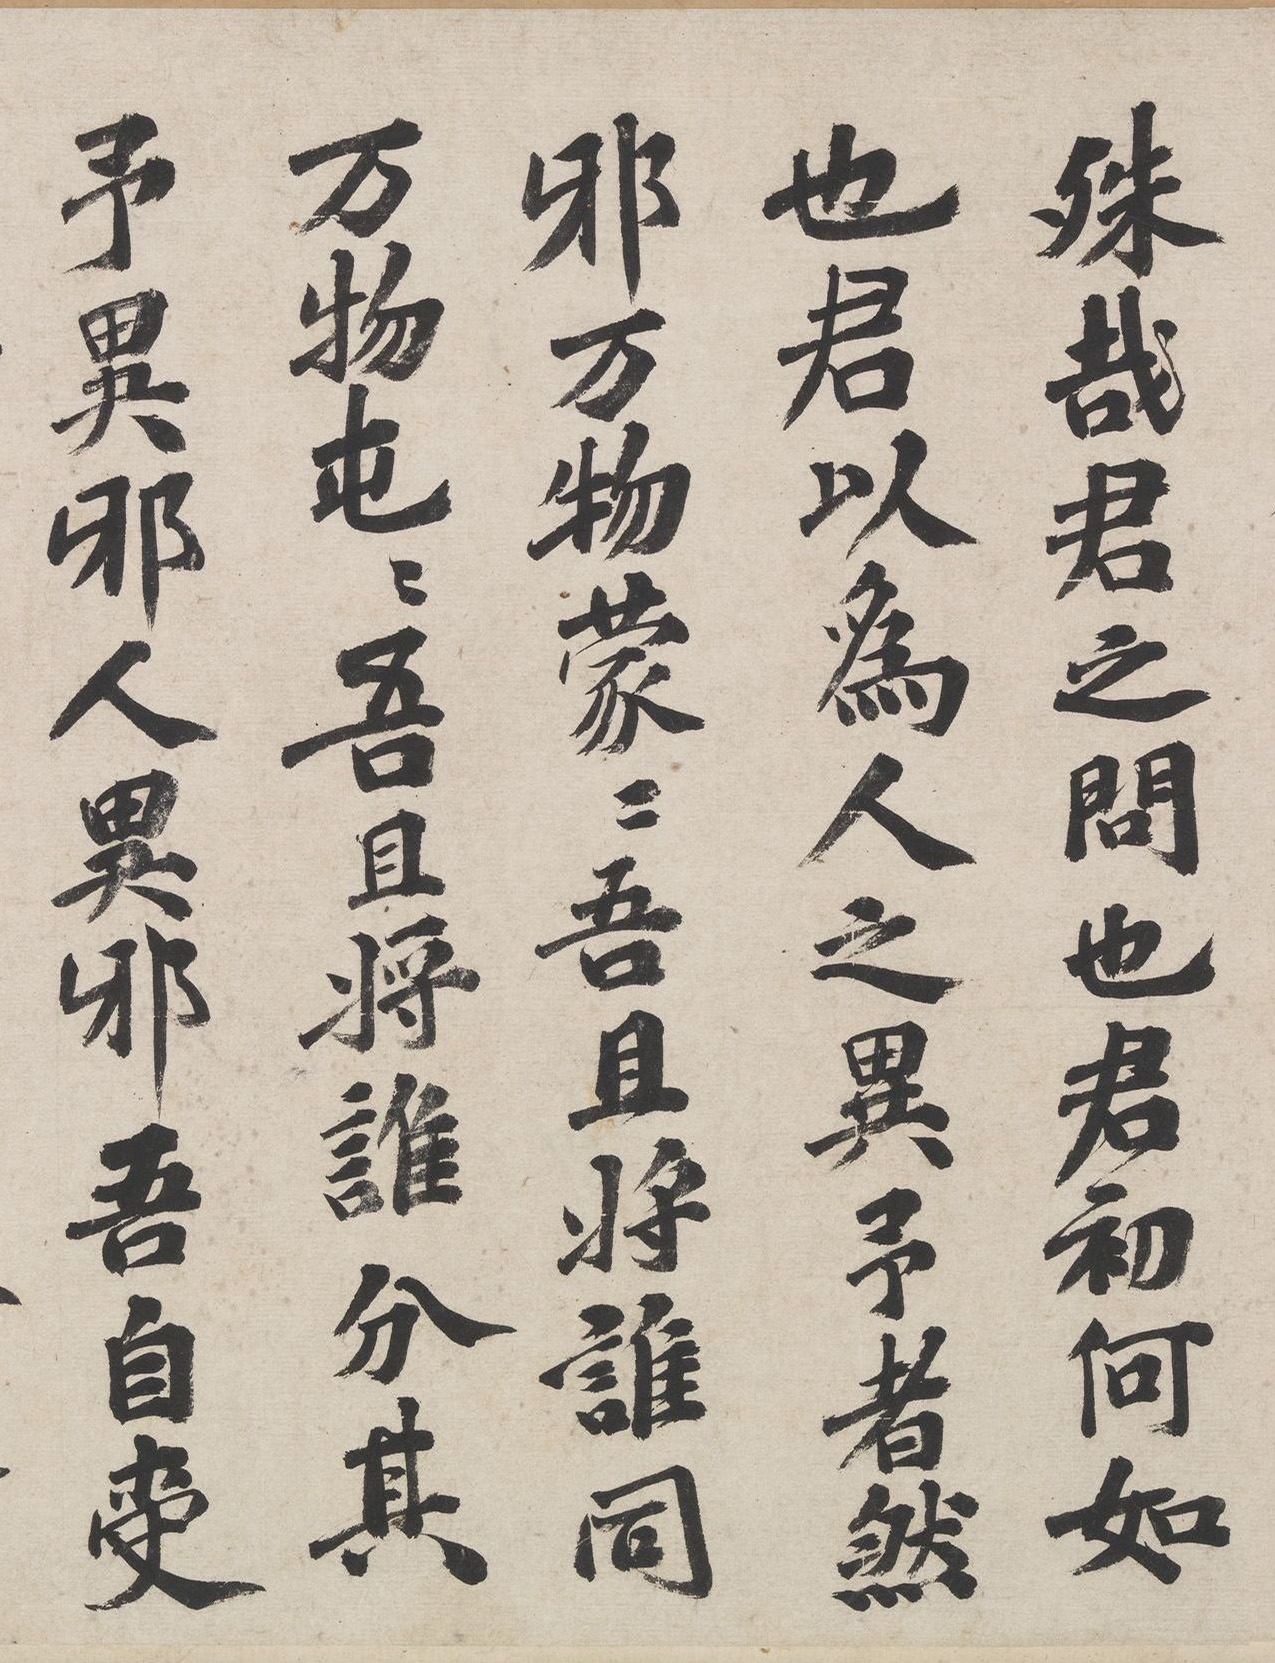 殊哉君之問也君初何如
也君以爲人之異予者然
邪万物蒙〻吾且将誰同
万物屯〻吾且将誰分其
予異邪人異邪吾自